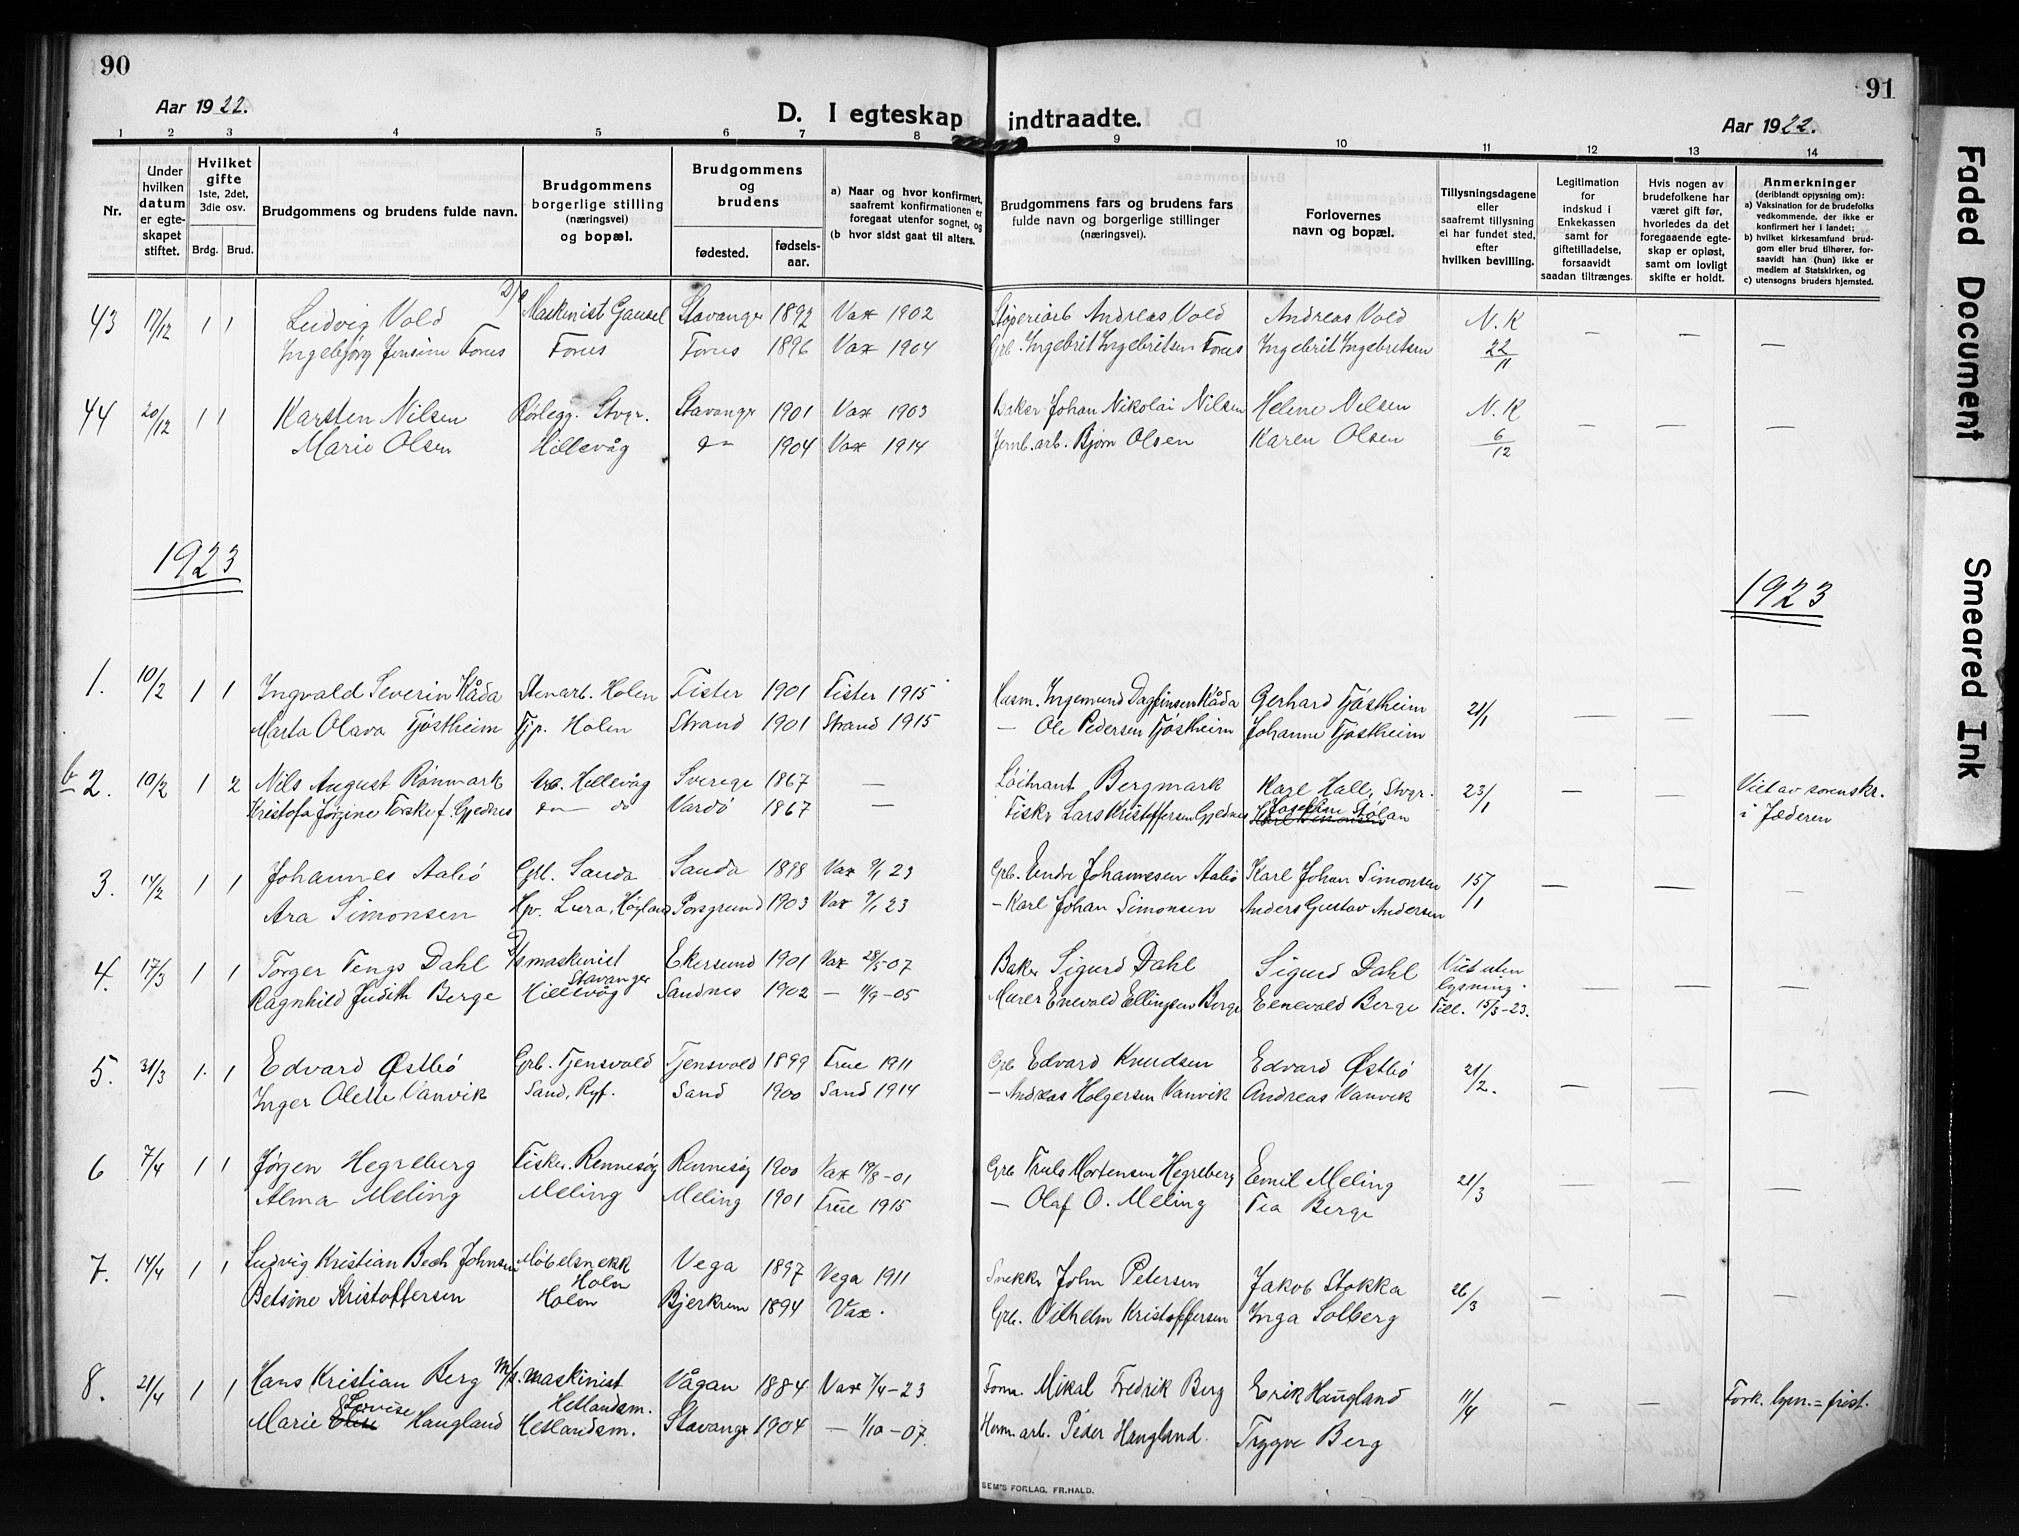 90
91
Aar 1922.
D. I egteskap indtraadte.
Aar 1922.
1 2 3 4 5 6 7 8 9 10 11 12 13 14
Nr.
Under hvilken datum er egteskapet stiftet.
Hvilket gifte 1ste, 2det, 3die osv.
Brdg. Brud.
Brudgommens og brudens fulde navn.
Brudgommens borgerlige stilling (næringsvei) og bopæl.
Brudgommens og brudens
fødested. fødselsaar.
a) Naar og hvor konfirmert, saafremt konfirmationen er foregaat utenfor sognet, og
(b hvor sidst gaat til alters.
Brudgommens fars og brudens fars fulde navn og borgerlige stillinger (næringsvei).
Forlovernes navn og bopæl.
Tillysningsdagene eller saafremt tillysning ei har fundet sted, efter hvilken bevilling.
Legitimation for indskud i Enkekassen samt for giftetilladelse, forsaavidt saadan tiltrænges.
Hvis nogen av brudefolkene har været gift før, hvorledes da det foregaaende egteskap er opløst, samt om lovlig skifte er holdt.
Anmerkninger (deriblandt opysning om):
a) Vaksination for de brudefolks vedkommende, der ikke er konfirmert her i landet;
b) hvilket kirkesamfund brudgom eller brud tilhører, forsaavidt han (hun) ikke er medlem af Statskirken, og
c) utensogns bruders hjemsted.
43 17/12 1 1 Ludvig Vold D/s Maskinist Gausel Stavanger 1892 Vax 1902 Støperiarb Andreas Vold Andreas Vold N.K — — —
Ingebjørg Jensine Forus Forus Forus 1896 Vax 1904 Grb. Ingebrit Ingebritsen Forus Ingebrit Ingebritsen 22/11
44 20/12 1 1 Karsten Nilsen Rørlegg. Stvgr. Stavanger 1901 Vax 1903 Baker Johan Nikolai Nilsen Helene Nilsen N.K — — —
Marie Olsen Hillevåg do 1904 Vax 1914 Jernb.arb. Bjørn Olsen Karen Olsen 6/12
1923
1923
1. 10/2 1 1 Ingvald Severin Kåda Stenarb. Holen Fister 1901 Fister 1915 Husm. Ingemund Dagfinsen Kåda Gerhard Tjøstheim 21/1 — — —
Marta Olava Tjøstheim Tjp. Holen Strand 1901 Strand 1915 — Ole Pedersen Tjøstheim Johanne Tjøstheim
b 2. 10/2 1 2 Nils August Rönmark Arb. Hillevåg Sverige 1867 — Löitnant Bergmark Karl Hall, Stvgr. 23/1 — — Viet av sorenskr.
Kristofa Jørgine Torskef. Gjednes do do Vardö 1867 — Fisker Lars Kristoffersen Gjednes Josefine Stølan i Jæderen
3. 14/2 1 1 Johannes Aabø Gbr. Sauda Sauda 1898 Vax 9/1 23 Grb. Endre Johannesen Aabø Karl Johan Simonsen 15/1 — — —
Ara Simonsen Hp. Lura, Høyland Porsgrund 1903 Vax 9/1 23 — Karl Johan Simonsen Anders Gustav Andersen
4. 17/3 1 1 Torger Tengs Dahl D/s maskinist Stavanger Ekersund 1901 Vax 28/5-07 Baker Sigurd Dahl Sigurd Dahl Viet uten lysning. — — —
Ragnhild Judith Berge Hillevåg Sandnes 1902 — 11/9-05 Murer Enevald Ellingsen Berge Eenevald Berge Till. 15/3-23.
5. 31/3 1. 1 Edvard Østbø Grb. Tjensvold Tjensvold 1899 Frue 1911 Grb Edvard Knudsen Edvard Østbø 21/2. — — —
Inger Olette Vanvik Sand, Ryf. Sand 1900 Sand 1914 — Andreas Holgersen Vanvik Andreas Vanvik
6 7/4 1 1 Jørgen Hegreberg Fisker. Rennesøy Rennesøy 1900 Vax 19/8-01 Grb Truls Mortensen Hegreberg Emil Meling 21/3 — — —
Alma Meling Meling Meling 1901 Frue 1915 — Olaf O. Meling Tea Berge
7. 14/4 1 1 Ludvig Kristian Bech Johnsen Møbelsnekk Holen Vega 1897 Vega 1911 Snekker John Petersen Jakob Stokka 26/3 — — —
Betsine Kristoffersen Holen Bjerkrem 1894 Vax. Grb. Vilhelm Kristoffersen Inga Solberg
8. 21/4 1 1 Hans Kristian Berg M/k. maskinist Hetlandsm. Vågan 1884 Vax 7/4-23 Form. Mikal Fredrik Berg Erik Haugland 11/4 = — Fork. lysn. = frist.
Marie Lovise Haugland Hetlandsm. Stavanger 1904 — 1/10-07. Herm. arb. Peder Haugland. Trygve Berg
SEM'S FORLAG, FR.HALD.
Faded Document
Smeared Ink